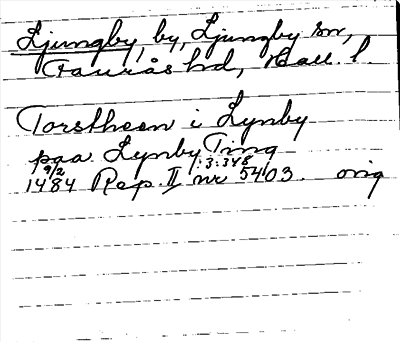 Ljungby, by, Ljungby sn,
Faurås hd, Hall. l.
Torstheen i Lynby
paa Lynby Ting
9/2 :3:348
1484 Rep. II nr 5403. orig